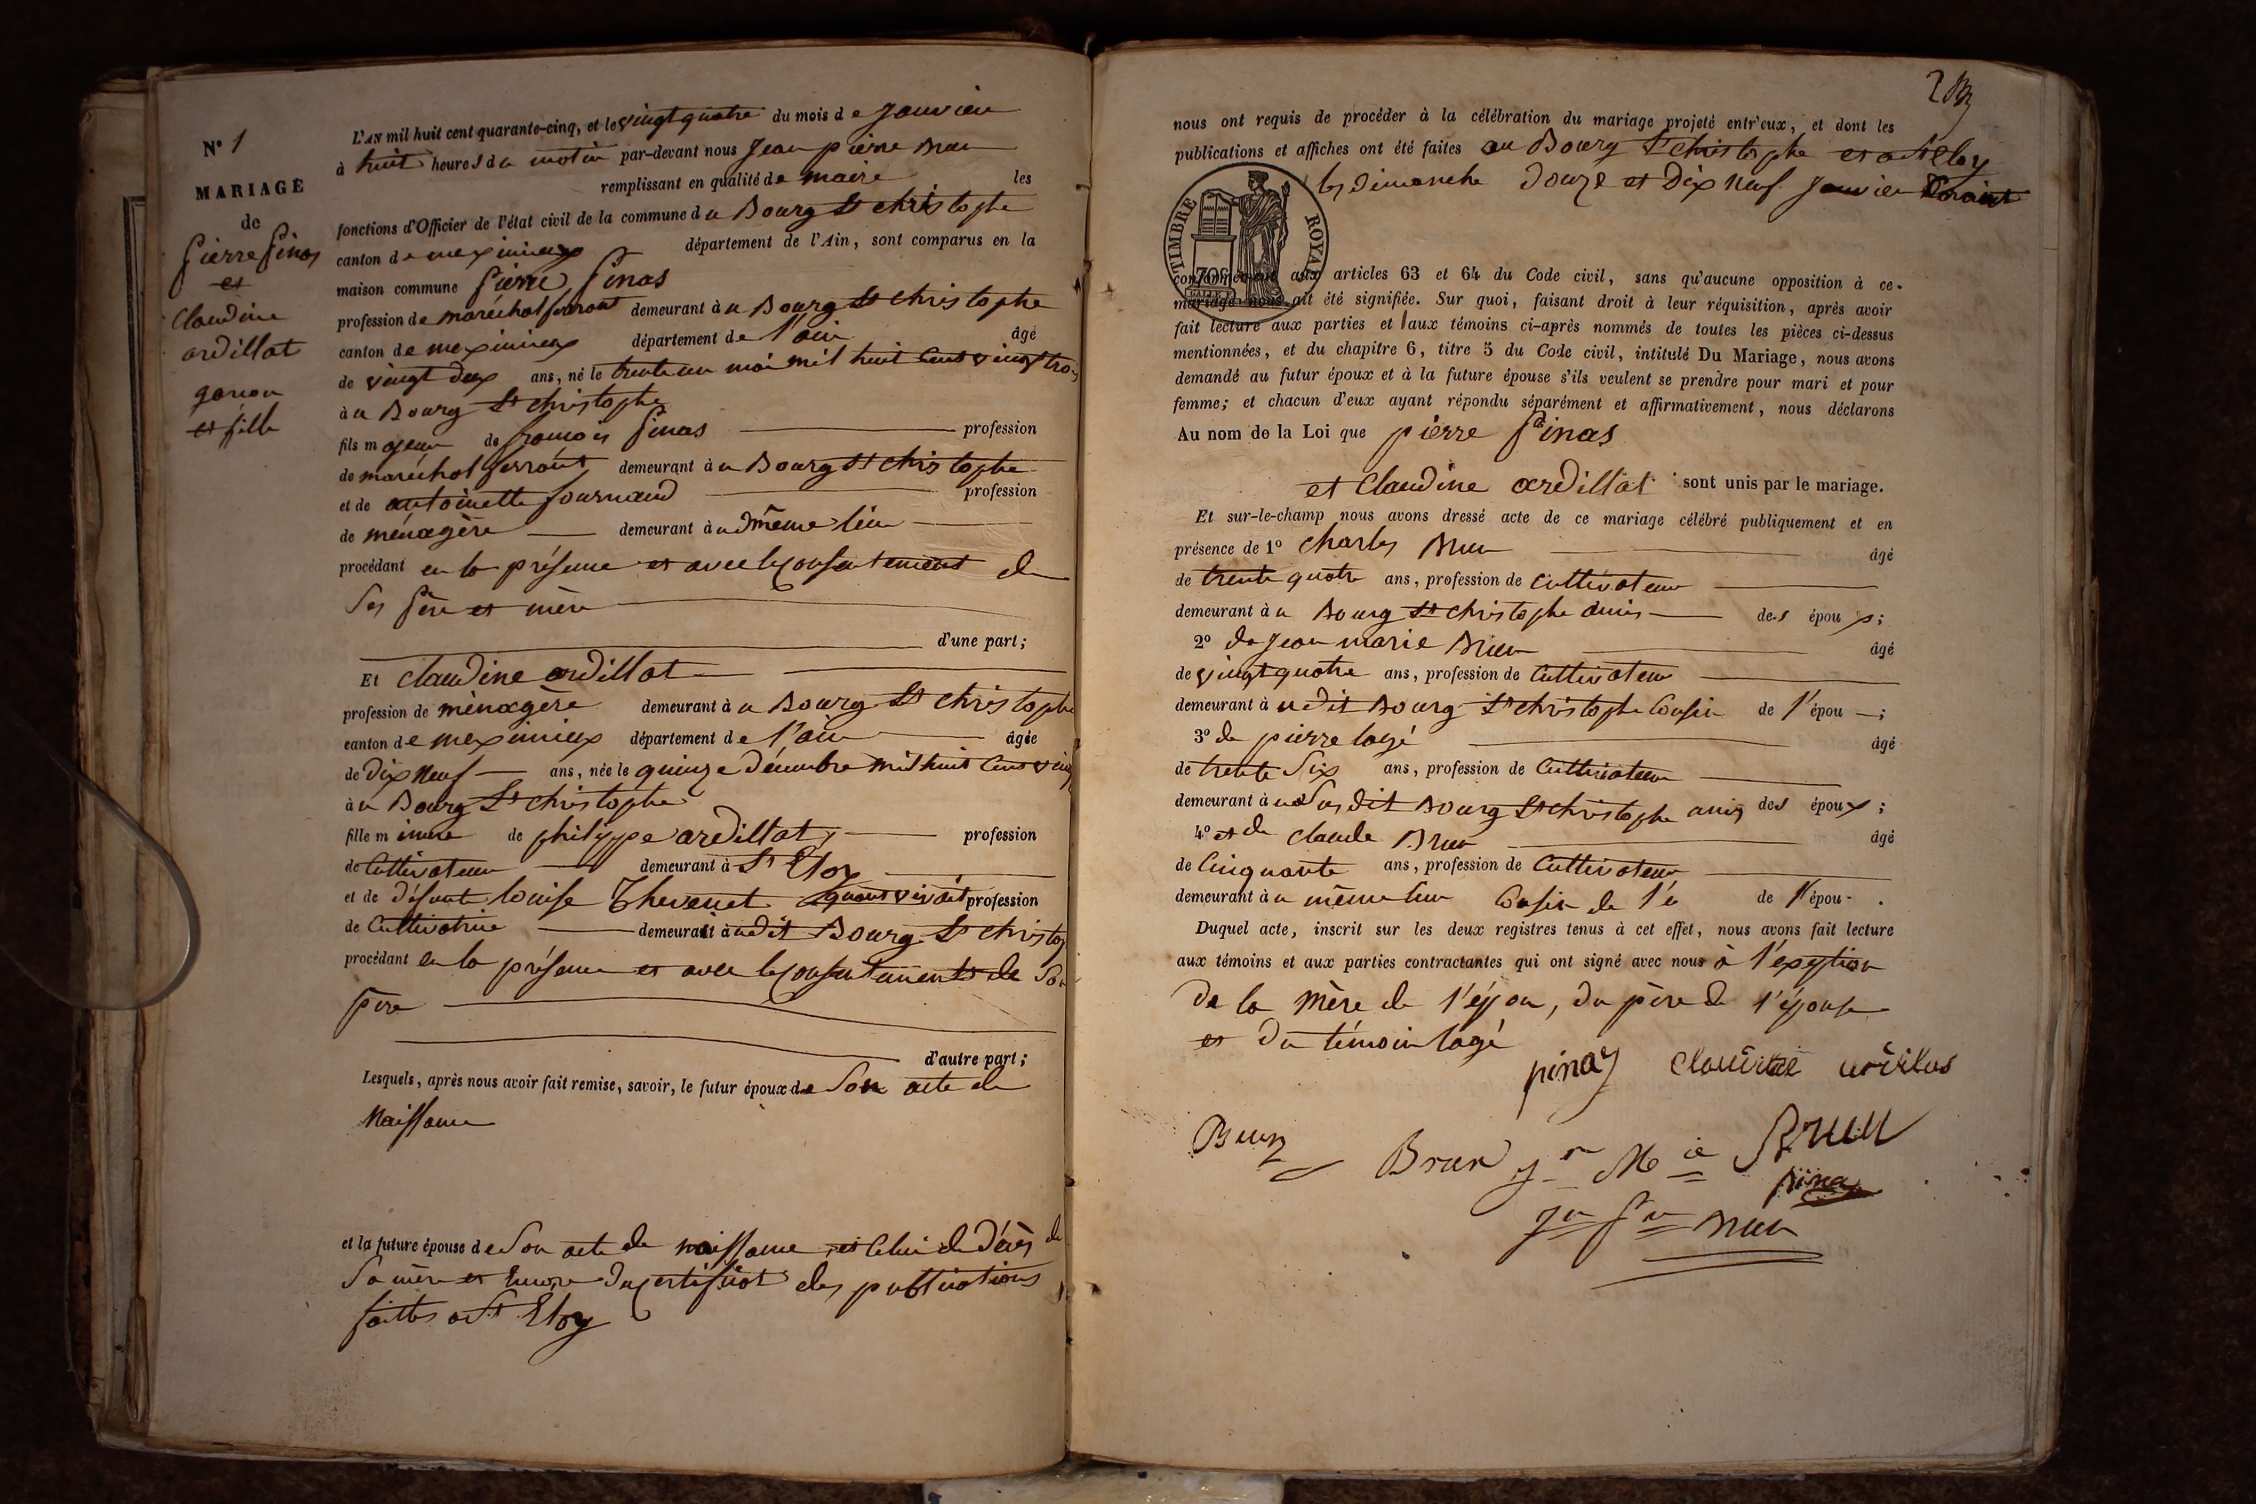 N° 1
MARIAGE
de
Pierre Pinas
et
Claudine
ardillat
garcon
et fille
L'AN mil huit cent quarante-cinq, et le vingt quatre du mois de Janvier
à huit heures du matin par-devant nous Jean pierre Brun
remplissant en qualité de maire les
fonctions d'Officier de l'état civil de la commune du Bourg St christophe
canton de meximieux département de l'Ain, sont comparus en la
maison commune Pierre Pinas
profession de maréchal ferrant demeurant à u Bourg St christophe
canton de meximieux département de l'ain âgé
de vingt deux ans, né le trente un mai mil huit cent vingt trois
à u Bourg St christophe
fils majeur de françois Pinas profession
de maréchal ferrant demeurant à u Bourg St christophe
et de antoinette fournand profession
de ménagère demeurant à u même lieu
procédant en la présence et avec le consentement de
Ses père et mère
d'une part;
Et claudine ardillat
profession de ménagère demeurant à u Bourg St christophe
canton de meximieux département de l'ain âgée
de dix neuf ans, née le quinze décembre mil huit cent vingt
à u Bourg St christophe
fille mineure de philippe ardillat profession
de Cultivateur demeurant à St Eloy
et de défunte louise Thevenet quand vivait profession
de Cultivatrice demeurait à udit Bourg St christop
procédant en la présence et avec le consentement de Son
père
d'autre part;
Lesquels, après nous avoir fait remise, savoir, le futur époux de Son acte de
Naissance
et la future épouse de Son acte de naissance et Celui de décès de
Sa mère et encore du certificat des publications
faites à St Eloy
nous ont requis de procéder à la célébration du mariage projeté entr'eux, et dont les
publications et affiches ont été faites au Bourg St christophe et a St Eloy
les Dimanche Douze et Dix Neuf Janvier Courant
TIMBRE ROYAL
70c
conformément aux articles 63 et 64 du Code civil, sans qu'aucune opposition à ce
mariage nous ait été signifiée. Sur quoi, faisant droit à leur réquisition, après avoir
fait lecture aux parties et aux témoins ci-après nommés de toutes les pièces ci-dessus
mentionnées, et du chapitre 6, titre 5 du Code civil, intitulé Du Mariage, nous avons
demandé au futur époux et à la future épouse s'ils veulent se prendre pour mari et pour
femme; et chacun d'eux ayant répondu séparément et affirmativement, nous déclarons
Au nom de la Loi que pierre Pinas
et Claudine ardillat sont unis par le mariage.
Et sur-le-champ nous avons dressé acte de ce mariage célébré publiquement et en
présence de 1° Charles Brun âgé
de trente quatre ans, profession de Cultivateur
demeurant à u Bourg St christophe amis des époux;
2° de Jean marie Brun âgé
de vingt quatre ans, profession de Cultivateur
demeurant à udit Bourg St christophe Cousin de l'épou;
3° de pierre lagé âgé
de trente Six ans, profession de Cultivateur
demeurant à u Susdit Bourg St christophe amis des époux;
4° et de claude Brun âgé
de Cinquante ans, profession de Cultivateur
demeurant à u même lieu Cousin de l'é de l'épou.
Duquel acte, inscrit sur les deux registres tenus à cet effet, nous avons fait lecture
aux témoins et aux parties contractantes qui ont signé avec nous à l'exeption
de la mère de l'épou, du père de l'épouse
et du témoin lagé
pinay claudine ardillas
Brun Brun Jn Mie Brun
pinay
Jn Pre Brun